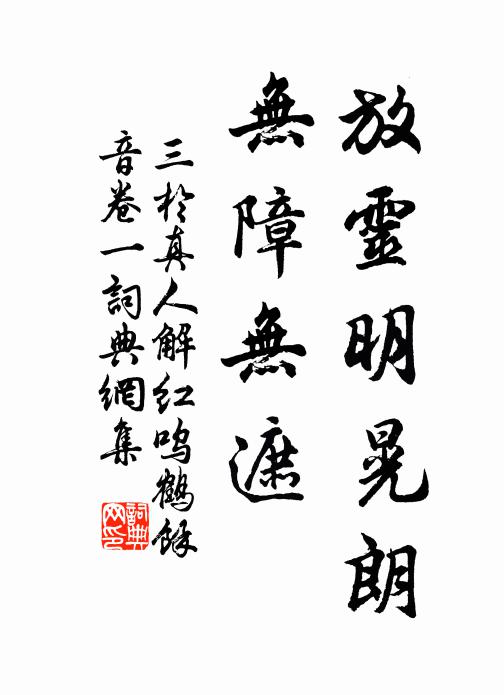 放靈明晃朗
無障無遮
三於真人解红鸣鶴餘
音卷一詞典網集
詞典网印